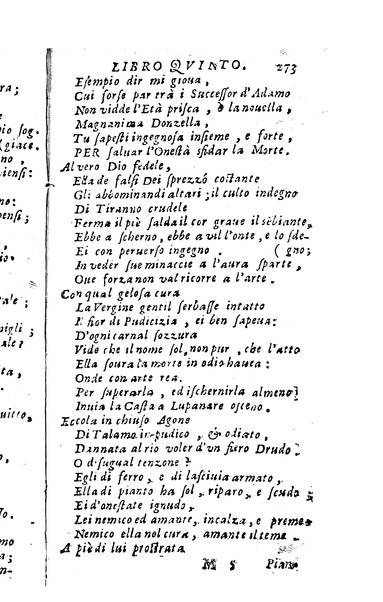 LIBRO QVINTO. 273
Esempio dir mi gioua,
Cui forse par trà i Successor d'Adamo
Non vidde l'Età prisca, ò la nouella,
Magnanima Donzella,
Tu sapesti ingegnosa insieme, e forte,
PER saluar l'Onestà sfidar la Morte.
Al vero Dio fedele,
Ella de falsi Dei sprezzò costante
Gli abbominandi altari; il culto indegno
Di Tiranno crudele
Ferma il piè salda il cor graue il sẽbiante,
Ebbe a scherno, ebbe a vil l'onte, e lo sde-
Ei con peruerso ingegno. (gno;
In veder sue minaccie a l'aura sparte,
Oue forza non val ricorre a l'arte.
Con qual gelosa cura
La Vergine gentil serbasse intatto
Il fior di Pudicizia, ei ben sapeua:
D'ogni carnal sozzura
Vide che il nome sol, non pur, che l'atto
Ella soura la morte in odio haueua:
Onde con arte rea.
Per superarla, ed ischernirla almeno
Inuia la Casta a Lupanare osceno.
Eccola in chiuso Agone
Di Talamo impudico, & odiato,
Dannata al rio voler d'un fiero Drudo
O disugual tenzone?
Egli di ferro, e di lasciuia armato,
Ella di pianto ha sol, riparo, e scudo
Ei d'onestate ignudo,
Lei nemico ed amante, incalza, e preme
Nemico ella nol cura, amante il teme.
A piè di lui prostrata
M 5 Pian-
ra;
pio sog.
(giace.
no,
iensi:
pensi;
tale;
nigli;
ale?
ta,
uitto,
o.